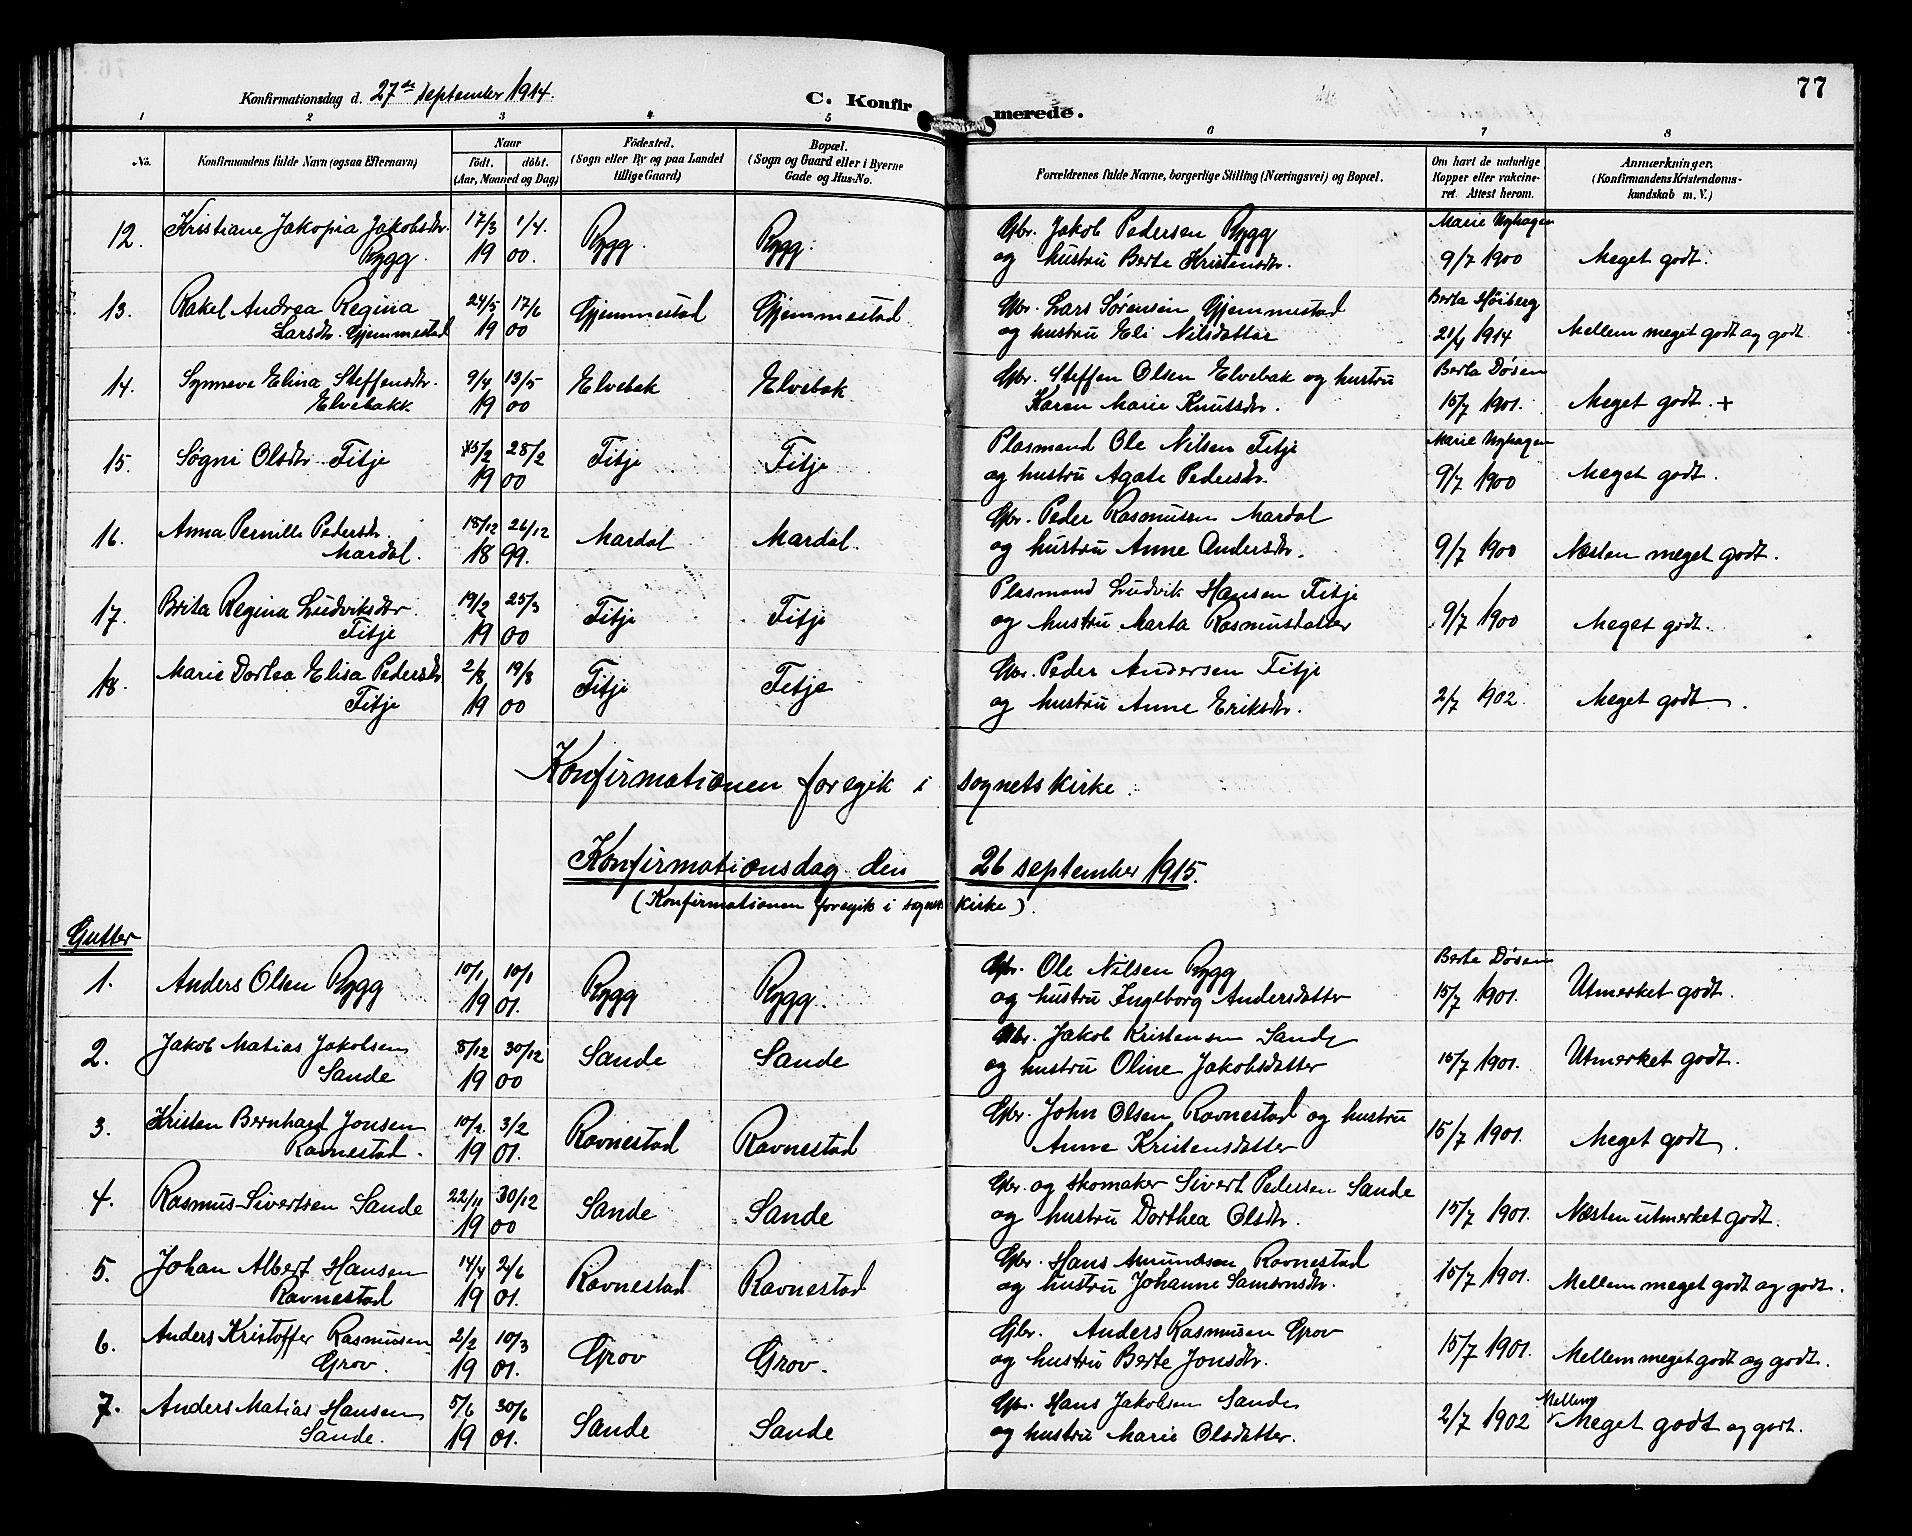 77
Konfirmationsdag d. 27de september 1914. C. Konfirmerede.
1 2 3 4 5 6 7 8
No. Konfirmandens fulde Navn (ogsaa Efternavn) Naar født. døbt. (Aar, Maaned og Dag) Fødested. (Sogn eller By og paa Landet tillige Gaard) Bopæl. (Sogn og Gaard eller i Byerne Gade og Hus-No. Forældrenes fulde Navne, borgerlige Stilling (Næringsvei) og Bopæl. Om havt de naturlige Kopper eller vakcineret. Attest herom. Anmærkninger. (Konfirmandens Kristendomskundskab m. V.)
12. Kristiane Jakopia Jakobsdtr. 17/3 1/4. Rygg. Rygg. Gbr. Jakob Pedersen Rygg Marie Nyhagen
Rygg. 19 00. og hustru Berte Kristensdtr. 9/7 1900 Meget godt.
13. Rakel Andrea Regina 24/5 17/6 Gjemmestad Gjemmestad Gbr. Lars Sørensen Gjemmestad Berta Høiberg
Larsdtr. Gjemmestad 19 00 og hustru Eli Nilsdatter 21/4 1914 Mellem meget godt og godt
14. Synneve Elina Steffensdtr. 9/4 13/5 Elvebak Elvebak Gbr. Steffen Olsen Elvebak og hustru Berta Døsen
Elvebakk 19 00 Karen Marie Knutsdtr. 15/7 1901. Meget godt. +
15. Søgni Olsdtr. Fitje 15/2 28/2 Fitje Fitje Plasmand Ole Nilsen Fitje Marie Nyhagen
19 00 og hustru Agate Pedersdtr. 9/7 1900 Meget godt.
16. Anna Pernille Pedersdtr. 18/12 26/12 Mardal Mardal. Gbr. Peder Rasmussen Mardal
Mardal. 18 99. og hustru Anne Andersdtr. 9/7 1900 Næsten meget godt.
17. Brita Regina Ludviksdtr 19/2 25/3 Fitje Fitje Plasmand Ludvik Hansen Fitje
Fitje 19 00 og hustru Marta Rasmusdatter 9/7 1900 Meget godt.
18. Marie Dortea Elisa Pedersdtr 2/8 19/8 Fitje Fitje Gbr. Peder Andersen Fitje
Fitje 19 00 og hustru Anne Eriksdtr. 2/7 1902. Meget godt.
Konfirmationen foregik i sognets kirke.
Konfirmationsdag den 26 september 1915.
(Konfirmationen foregik i sognets kirke).
Gutter
1. Anders Olsen Rygg 10/1 10/1 Rygg Rygg. Gbr. Ole Nilsen Rygg Berte Døsen
19 01. og hustru Ingeborg Andersdatter 15/7 1901. Utmerket godt.
2. Jakob Matias Jakobsen 8/12 30/12 Sande Sande Gbr. Jakob Kristensen Sande
Sande 19 00 og hustru Oline Jakobsdatter 15/7 1901. Utmerket godt.
3. Kristen Bernhard Jonsen 10/2 3/2 Ravnestad Ravnestad Gbr. John Olsen Ravnestad og hustru
Ravnestad. 19 01. Anne Kristensdatter 15/7 1901. Meget godt.
4. Rasmus Sivertsen Sande 22/11 30/12 Sande Sande Gbr. og skomaker Sivert Pedersen Sande
19 00 og hustru Dorthea Olsdtr. 15/7 1901. Næsten utmerket godt.
5. Johan Albert Hansen 14/4 2/6 Ravnestad Ravnestad Gbr. Hans Amundsen Ravnestad
Ravnestad 19 01. og hustru Johanne Samsonsdtr. 15/7 1901. Mellem meget godt og godt.
6. Anders Kristoffer Rasmusen 2/2 10/3 Grov Grov. Gbr. Anders Rasmusen Grov
Grov. 19 01. og hustru Berte Jonsdtr. 15/7 1901. Mellem meget godt og godt.
7. Anders Matias Hansen 5/6 30/6 Sande Sande Gbr. Hans Jakobsen Sande Mellem
Sande. 19 01. og hustru Marie Olsdatter. 2/7 1902 Meget godt og godt.